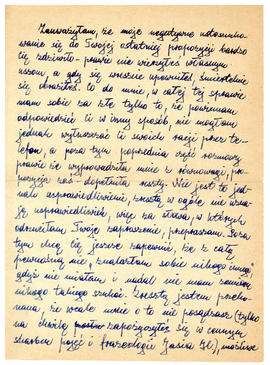 Zauważyłam, że moje negatywne ustosunko-
wanie się do Twojej ostatniej propozycji bardzo
Cię zdziwiło – prawie nie wierzyłeś własnym
uszom, a gdy się wreszcie upewniłeś, śmiertelnie
się obraziłeś. Co do mnie, w całej tej sprawie
mam sobie za złe tylko to, że powinnam
odpowiedzieć Ci w inny sposób, nie mogłam
jednak wytłuszczać Ci swoich racji przez te-
lefon, a poza tym poprzednia część rozmowy
prawie że wyprowadziła mnie z równowagi, pro-
pozycja zaś dopełniła reszty. Nie jest to jed-
nak usprawiedliwienie, zresztą w ogóle nie uzna-
ję usprawiedliwień, więc za słowa, w których
odrzuciłam Twoje zaproszenie, przepraszam. Poza
tym chcę Cię jeszcze zapewnić, że z całą
pewnością nie „znalazłam sobie nikogo innego",
gdyż nie miałam i nadal nie mam zamiaru
nikogo takiego szukać. Zresztą jestem przeko-
nana, że wcale mnie o to nie posądzasz (tylko
na chwilę zapożyczyłeś się w cennym
skarbcu pojęć i frazeologii Jasia), możliwe